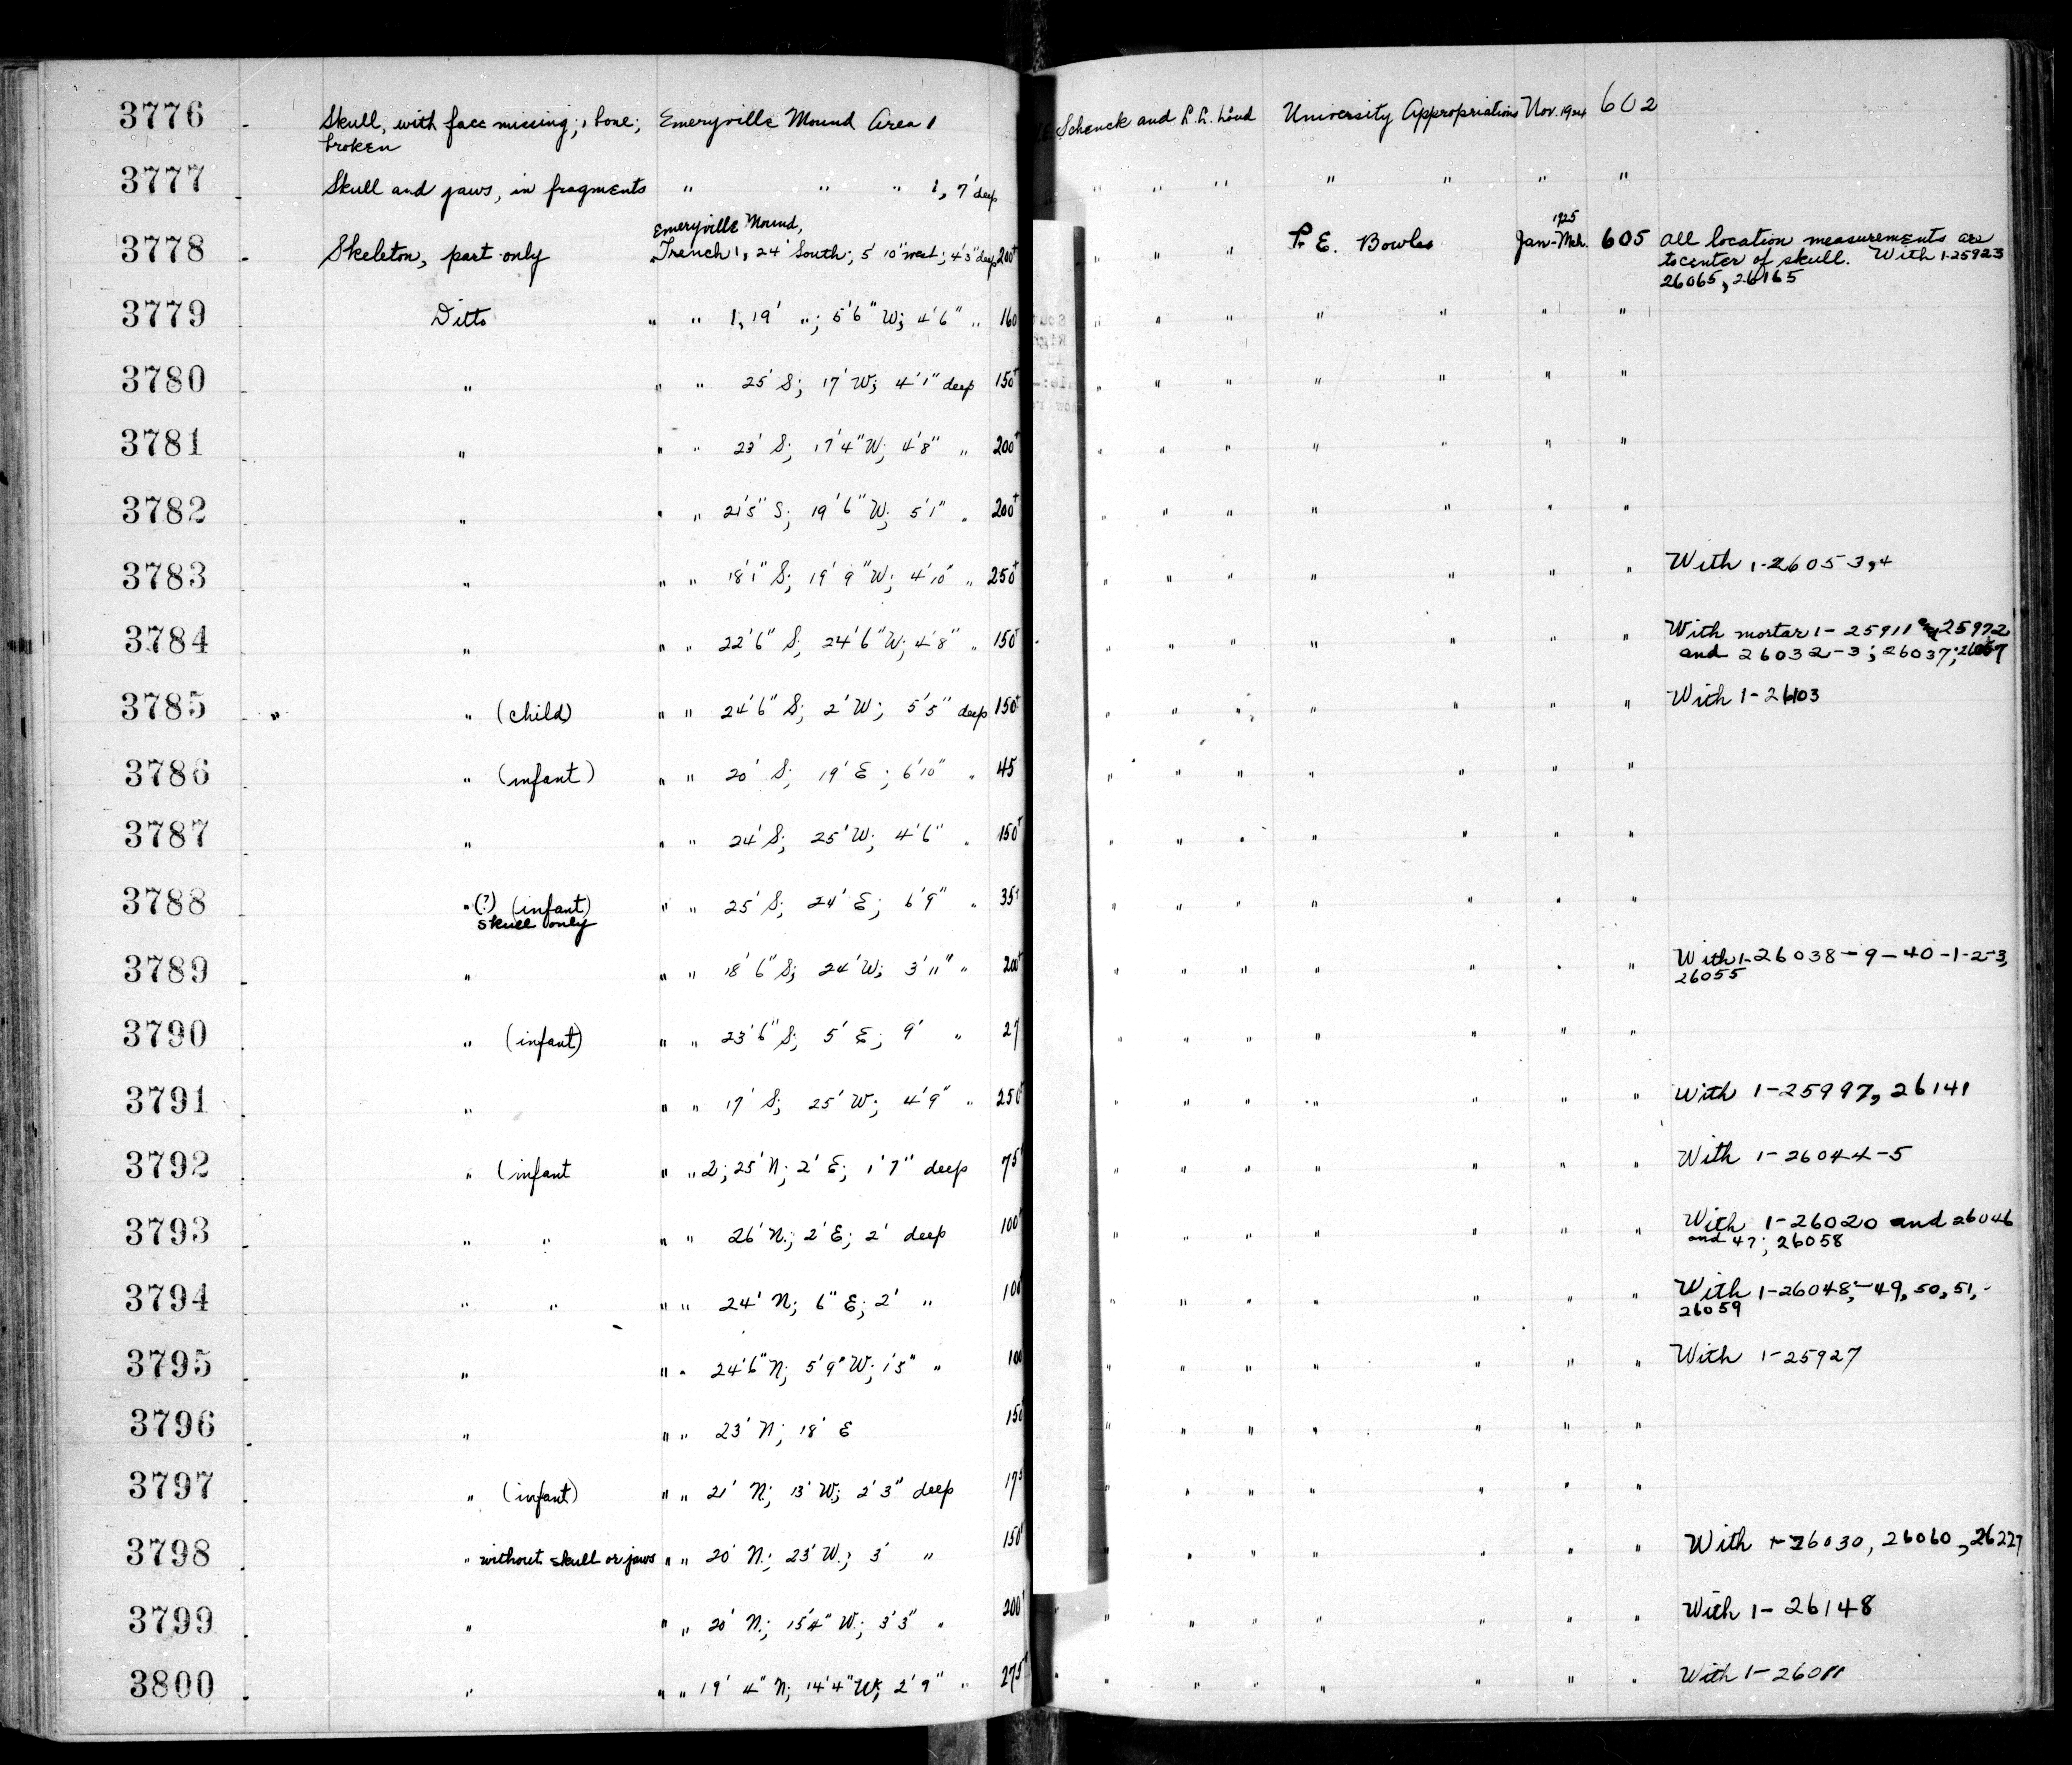 3776 Skull, with face missing; 1 bone; Emeryville Mound Area 1 Schenck and L.L. Loud University Appropriations Nov. 1924 602
broken
3777 Skull and jaws, in fragments " " " 1, 7' deep " " " " " " "
Emeryville Mound, 1925
3778 Skeleton, part only Trench 1, 24' South; 5' 10" west; 4'3" deep 200+ " " P. E. Bowles Jan-Mch. 605 All location measurements are
to center of skull. With 1-25923
26065, 26165
3779 Ditto " " 1, 19' "; 5'6" W; 4'6" " 160 " " " " " " "
3780 " " " 25' S; 17' W; 4'1" deep 150+ " " " " " " "
3781 " " " 23' S; 17'4" W; 4'8" " 200+ " " " " " " "
3782 " " " 21'5" S; 19'6" W; 5'1" " 200+ " " " " " " "
3783 " " " 18'1" S; 19'9" W; 4'10" " 250+ " " " " " " " With 1-26053,4
3784 " " " 22'6" S; 24'6" W; 4'8" " 150+ " " " " " " " With mortar 1-25911 25972
and 26032-3; 26037;
3785 " " (child) " " 24'6" S; 2' W; 5'5" deep 150+ " " " " " " " With 1-26103
3786 " (infant) " " 20' S; 19' E; 6'10" " 45 " " " " " " "
3787 " " " 24' S; 25' W; 4'6" " 150+ " " " " " " "
3788 " (?) (infant) " " 25' S; 24' E; 6'9" " 35+ " " " " " " "
skull only
3789 " " " 18'6" S; 24' W; 3'11" " 200+ " " " " " " " With 1-26038-9-40-1-2-3,
26055
3790 " (infant) " " 23'6" S; 5' E; 9' " 27 " " " " " " "
3791 " " " 17' S; 25' W; 4'9" " 250+ " " " " " " " With 1-25997, 26141
3792 " (infant " " 2; 25' N; 2' E; 1'7" deep 75+ " " " " " " " With 1-26044-5
3793 " " " " 26' N.; 2' E; 2' deep 100+ " " " " " " " With 1-26020 and 26046
and 47; 26058
3794 " " " " 24' N; 6" E; 2' " 100 " " " " " " " With 1-26048,-49, 50, 51,-
26059
3795 " " " 24'6" N; 5'9" W; 1'5" " 100 " " " " " " " With 1-25927
3796 " " " 23' N; 18' E 150+ " " " " " " "
3797 " (infant) " " 21' N; 13' W; 2'3" deep 175 " " " " " " "
3798 " without skull or jaws " " 20' N.; 23' W.; 3' " 150+ " " " " " " With 1-26030, 26060, 26227
3799 " " " 20' N.; 15'4" W.; 3'3" " 200+ " " " " " " " With 1-26148
3800 " " " 19' 4" N; 14'4" W; 2'9" " 275+ " " " " " " " With 1-26011